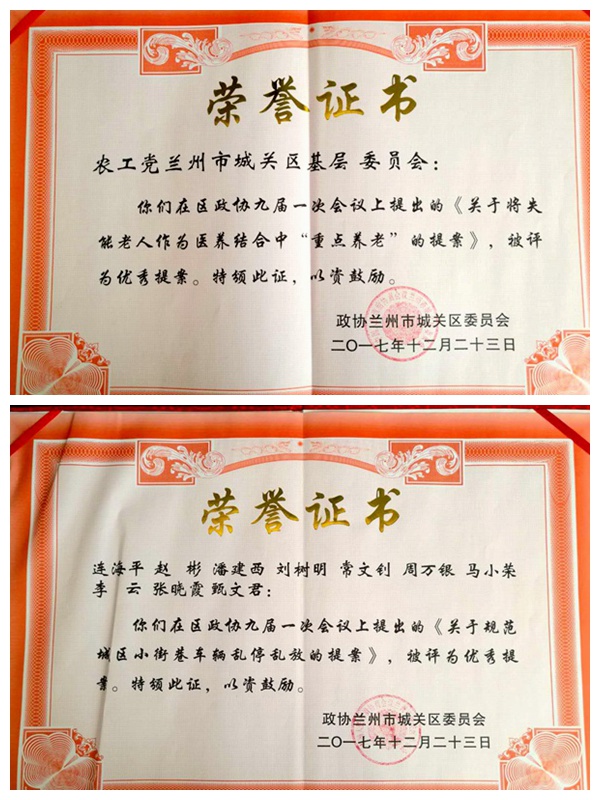 荣誉证书
农工党兰州市城关区基层 委员会：
你们在区政协九届一次会议上提出的《关于将失
能老人作为医养结合中“重点养老”的提案》，被评
为优秀提案。特颁此证，以资鼓励。
政协兰州市城关区委员会
二〇一七年十二月二十三日
荣誉证书
连海平 赵 彬 潘建西 刘树明 常文钊 周万银 马小荣
李 云 张晓霞 甄文君：
你们在区政协九届一次会议上提出的《关于规范
城区小街巷车辆乱停乱放的提案》，被评为优秀提
案。特颁此证，以资鼓励。
政协兰州市城关区委员会
二〇一七年十二月二十三日